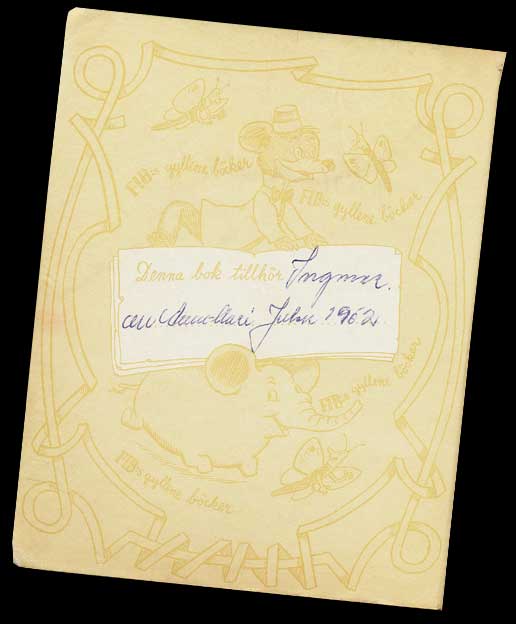 FIB:s gyllene böcker
FIB:s gyllene böcker
Denna bok tillhör Ingmar.
av Anne-Mari Julen 1962
FIB:s gyllene böcker
FIB:s gyllene böcker